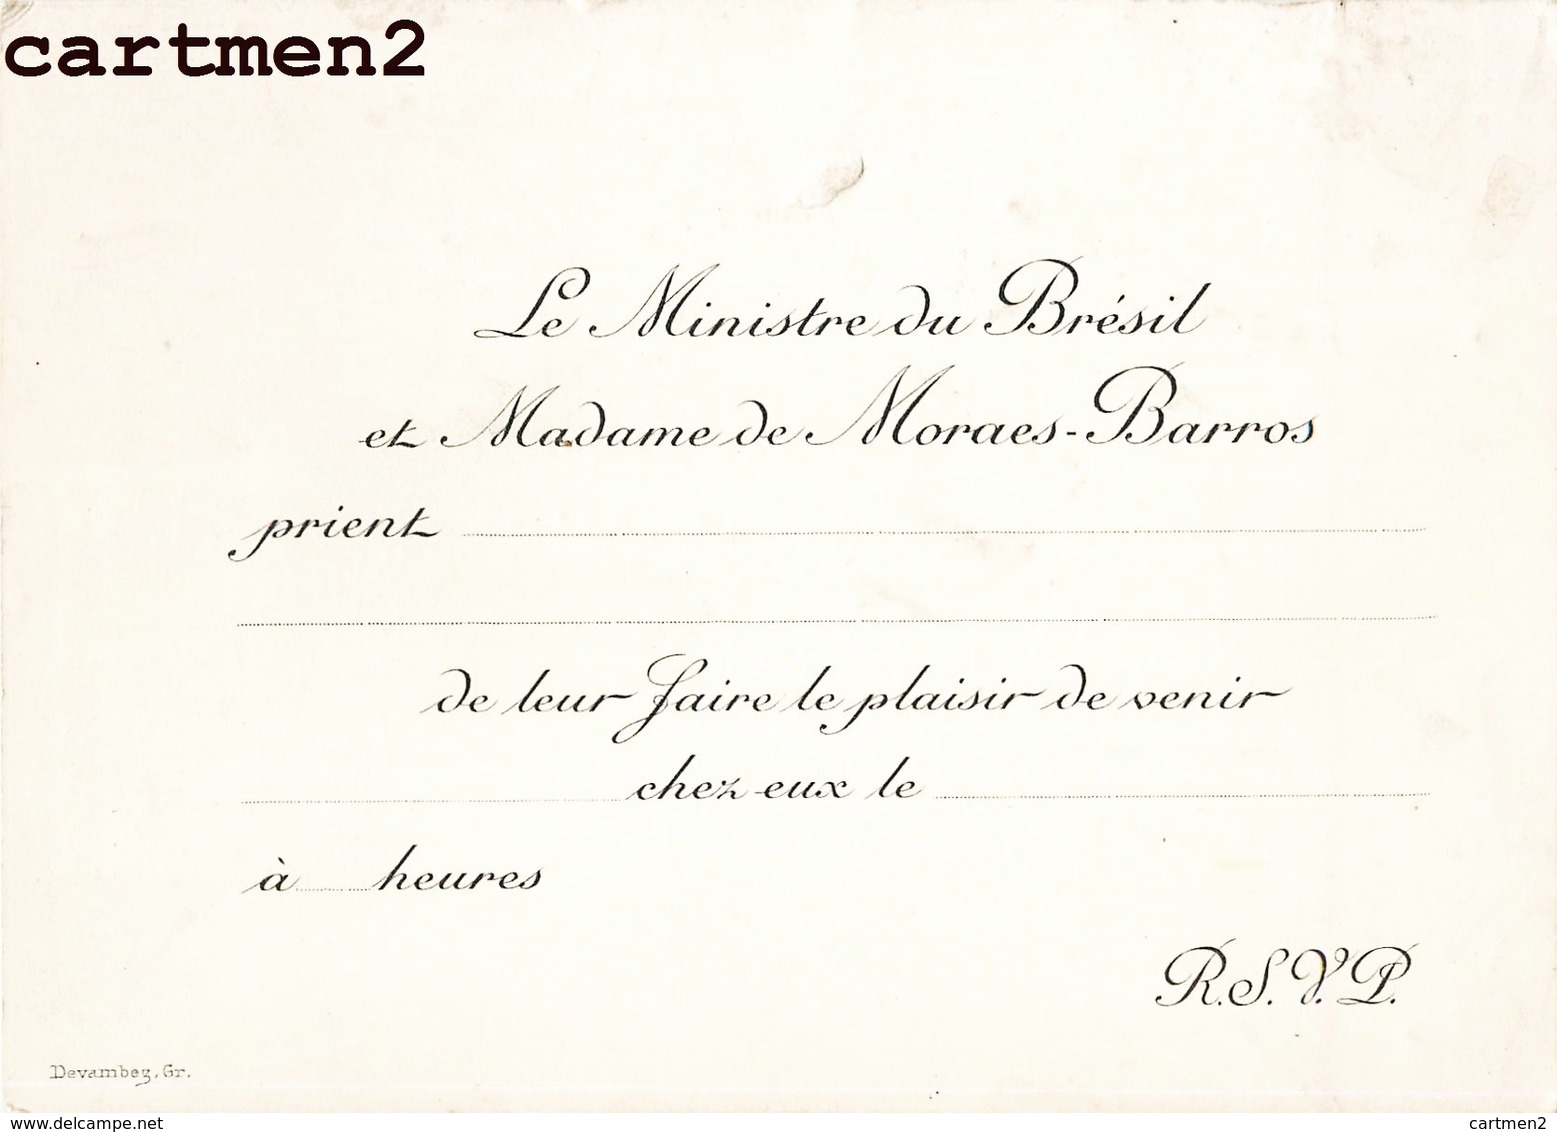 cartmen2
Le Ministre du Brésil
et Madame de Moraes-Barros
prient
de leur faire le plaisir de venir
chez eux le
à heures
R.S.V.P.
Devambez, Gr.
www.delcampe.net cartmen2